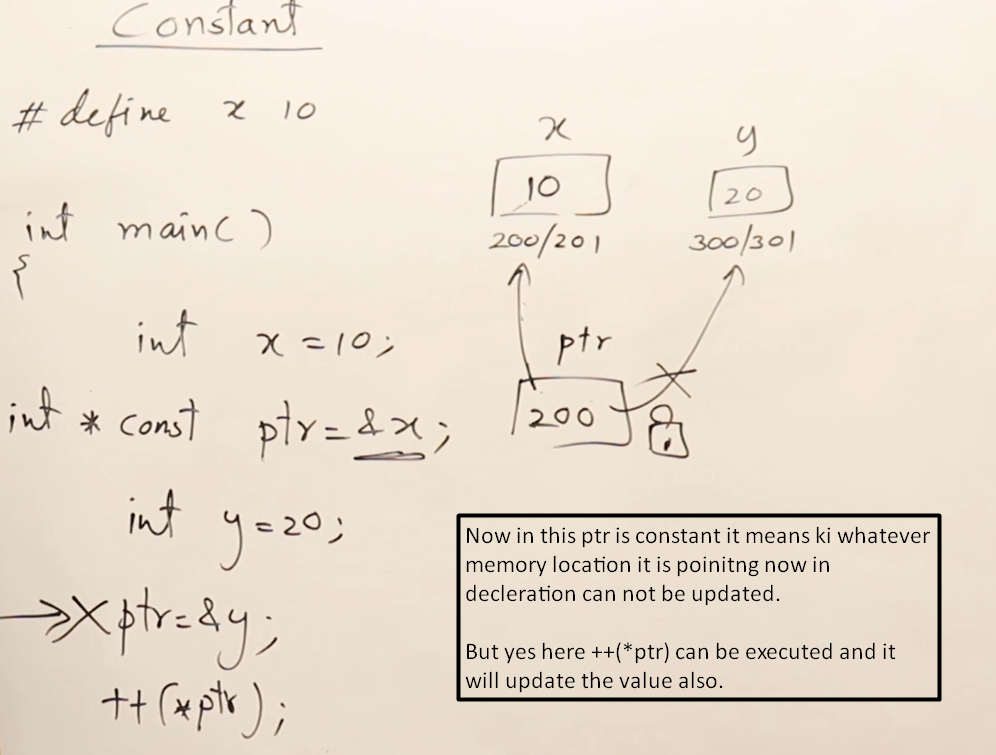 Constant
# define x 10
int main()
{
int x = 10;
int * const ptr = &x;
int y = 20;
→ X ptr = &y;
++(*ptr);
x
10
200/201
y
20
300/301
ptr
200
Now in this ptr is constant it means ki whatever
memory location it is poinitng now in
decleration can not be updated.
But yes here ++(*ptr) can be executed and it
will update the value also.